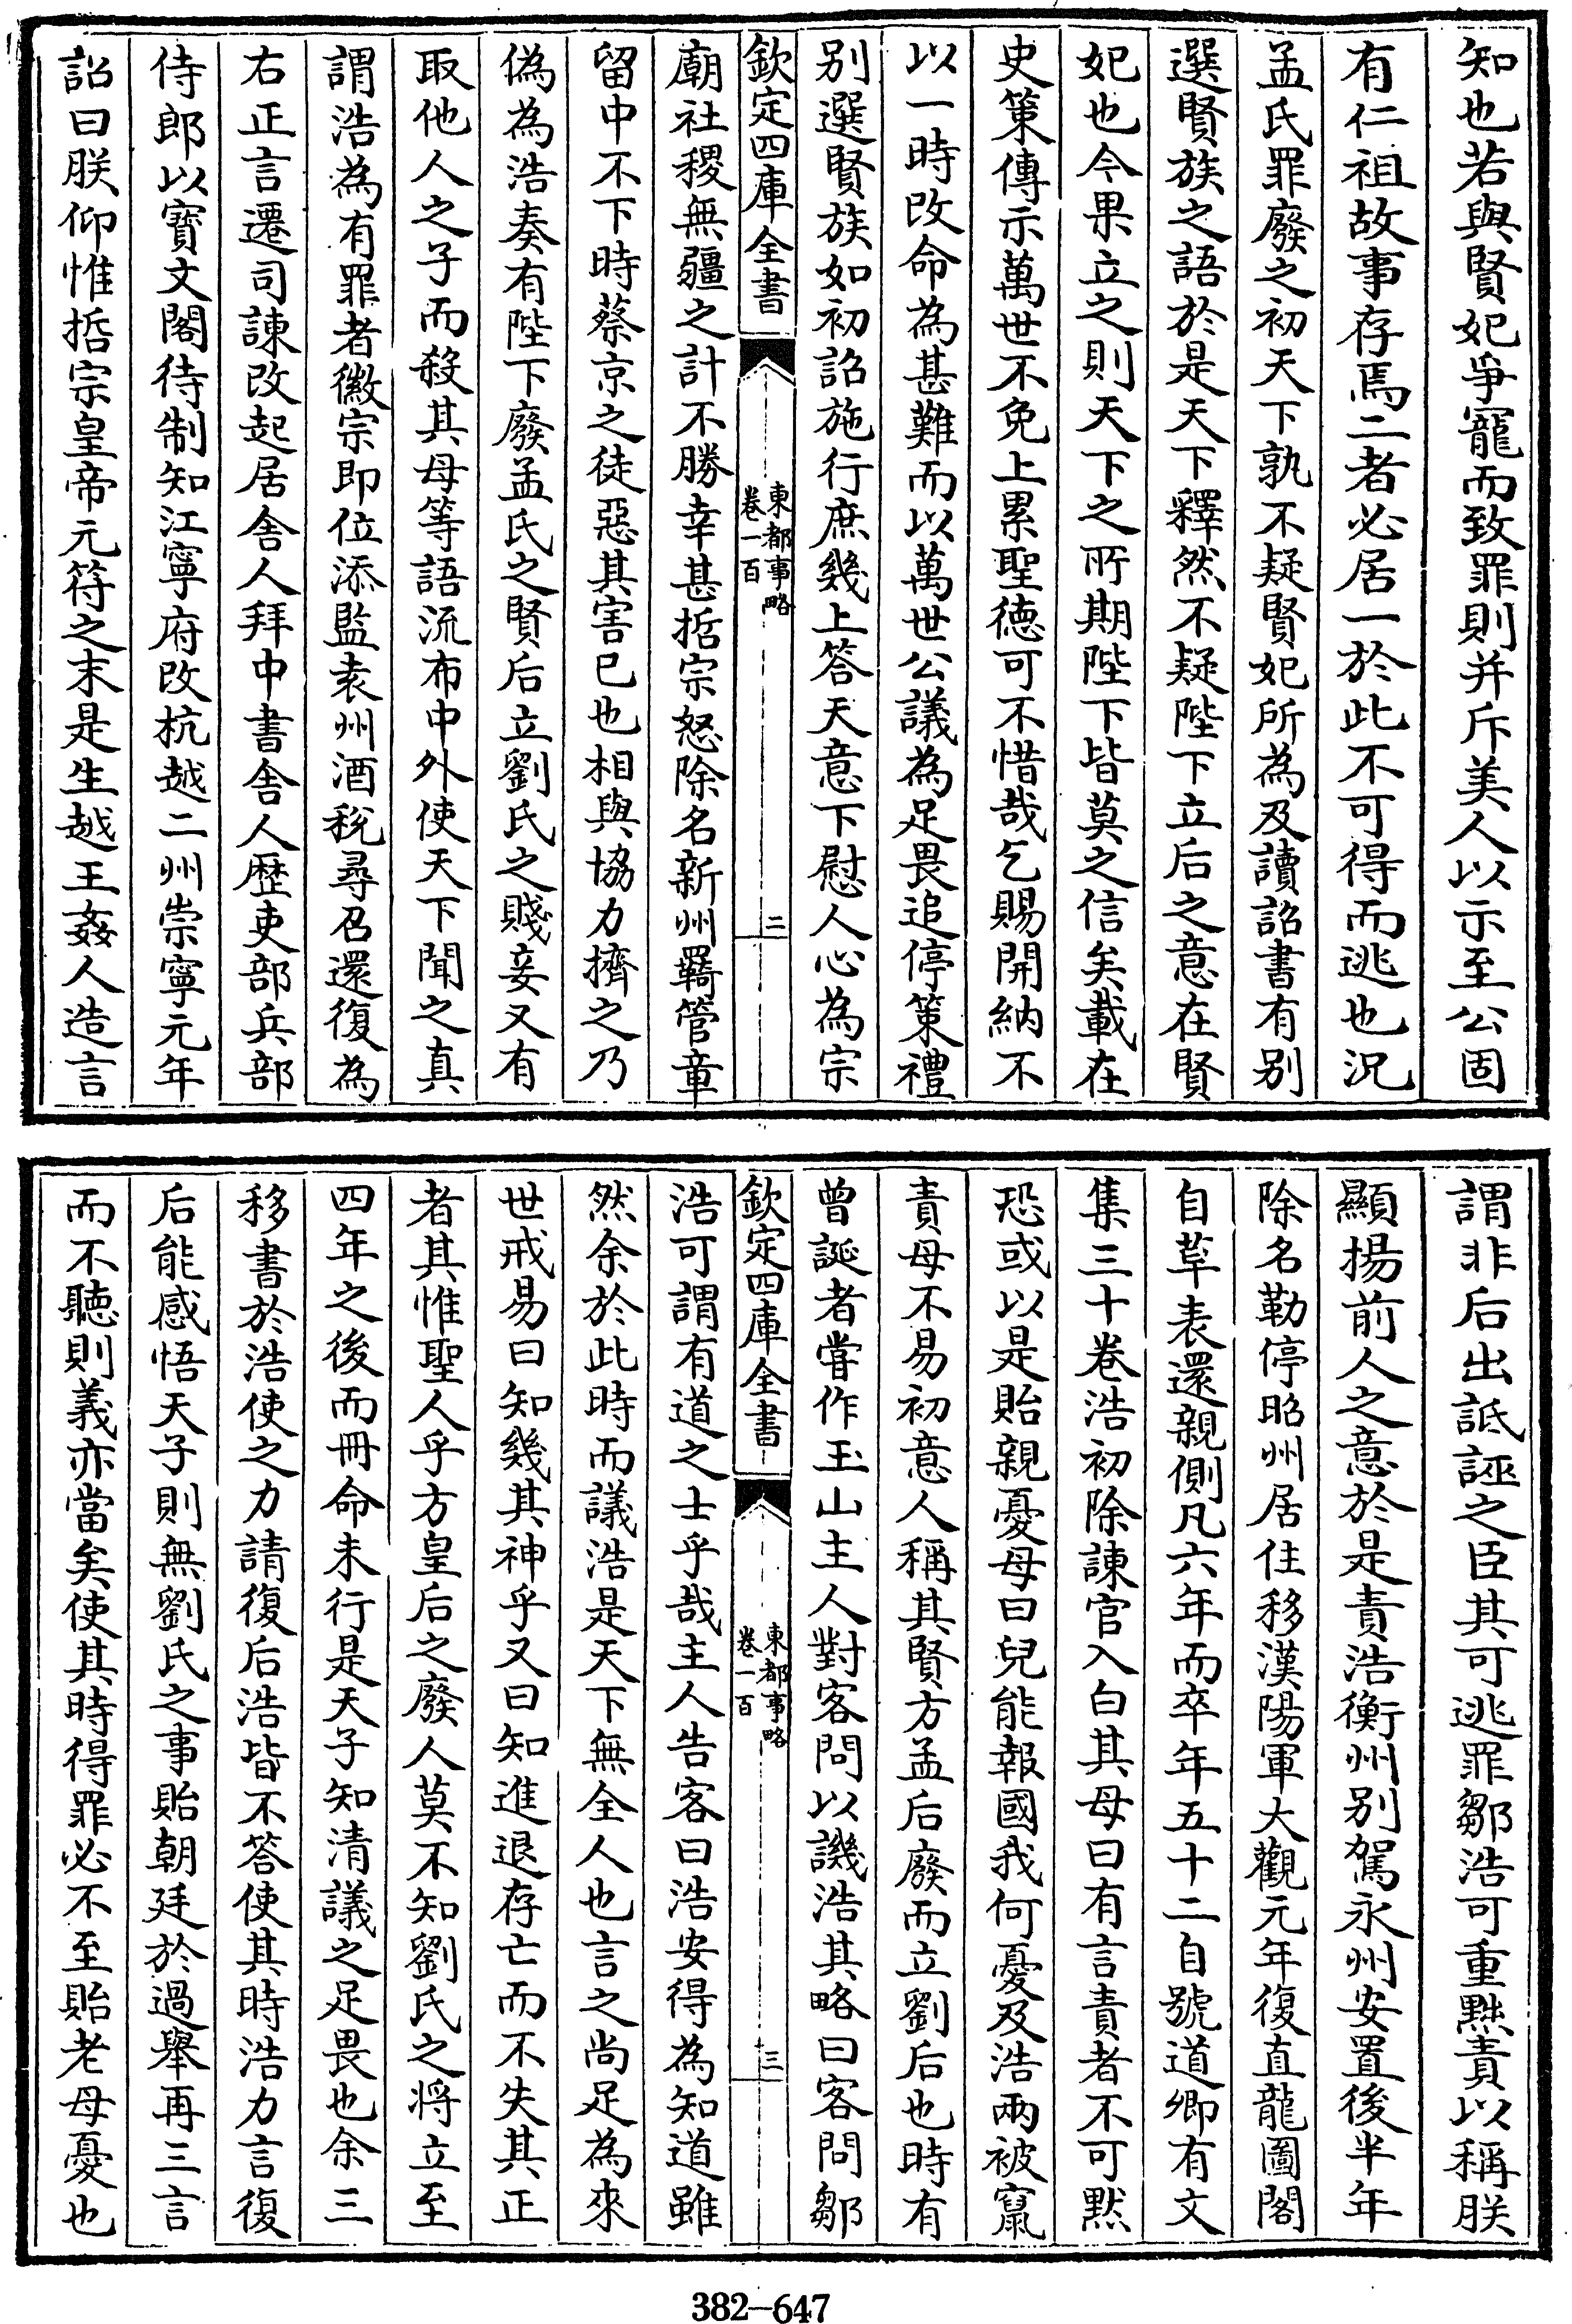 知也若與賢妃爭寵而致罪則并斥美人以示至公固
有仁祖故事存焉二者必居一於此不可得而逃也況
孟氏罪廢之初天下孰不疑賢妃所為及讀詔書有别
選賢族之語於是天下釋然不疑陛下立后之意在賢
妃也今果立之則天下之所期陛下皆莫之信矣載在
史策傳示萬世不免上累聖德可不惜哉乞賜開納不
以一時改命為甚難而以萬世公議為足畏追停策禮
别選賢族如初詔施行庶幾上答天意下慰人心為宗
欽定四庫全書
東都事略
卷一百
二
廟社稷無疆之計不勝幸甚哲宗怒除名新州羈管章
留中不下時蔡京之徒惡其害已也相與協力擠之乃
偽為浩奏有陛下廢孟氏之賢后立劉氏之賤妾又有
取他人之子而殺其母等語流布中外使天下聞之真
謂浩為有罪者徽宗即位添監袁州酒稅尋召還復為
右正言遷司諫改起居舍人拜中書舍人歷吏部兵部
侍郎以寳文閣待制知江寧府改杭越二州崇寧元年
詔曰朕仰惟哲宗皇帝元符之末是生越王姦人造言
謂非后出詆誣之臣其可逃罪鄒浩可重黜責以稱朕
顯揚前人之意於是責浩衡州别駕永州安置後半年
除名勒停昭州居住移漢陽軍大觀元年復直龍圖閣
自草表還親側凡六年而卒年五十二自號道鄉有文
集三十卷浩初除諫官入白其母曰有言責者不可黙
恐或以是貽親憂母曰兒能報國我何憂及浩兩被竄
責母不易初意人稱其賢方孟后廢而立劉后也時有
曾誕者嘗作玉山主人對客問以譏浩其略曰客問鄒
欽定四庫全書
東都事略
卷一百
三
浩可謂有道之士乎哉主人告客曰浩安得為知道雖
然余於此時而議浩是天下無全人也言之尚足為來
世戒易曰知幾其神乎又曰知進退存亡而不失其正
者其惟聖人乎方皇后之廢人莫不知劉氏之將立至
四年之後而冊命未行是天子知清議之足畏也余三
移書於浩使之力請復后浩皆不答使其時浩力言復
后能感悟天子則無劉氏之事貽朝廷於過舉再三言
而不聽則義亦當矣使其時得罪必不至貽老母憂也
382—647